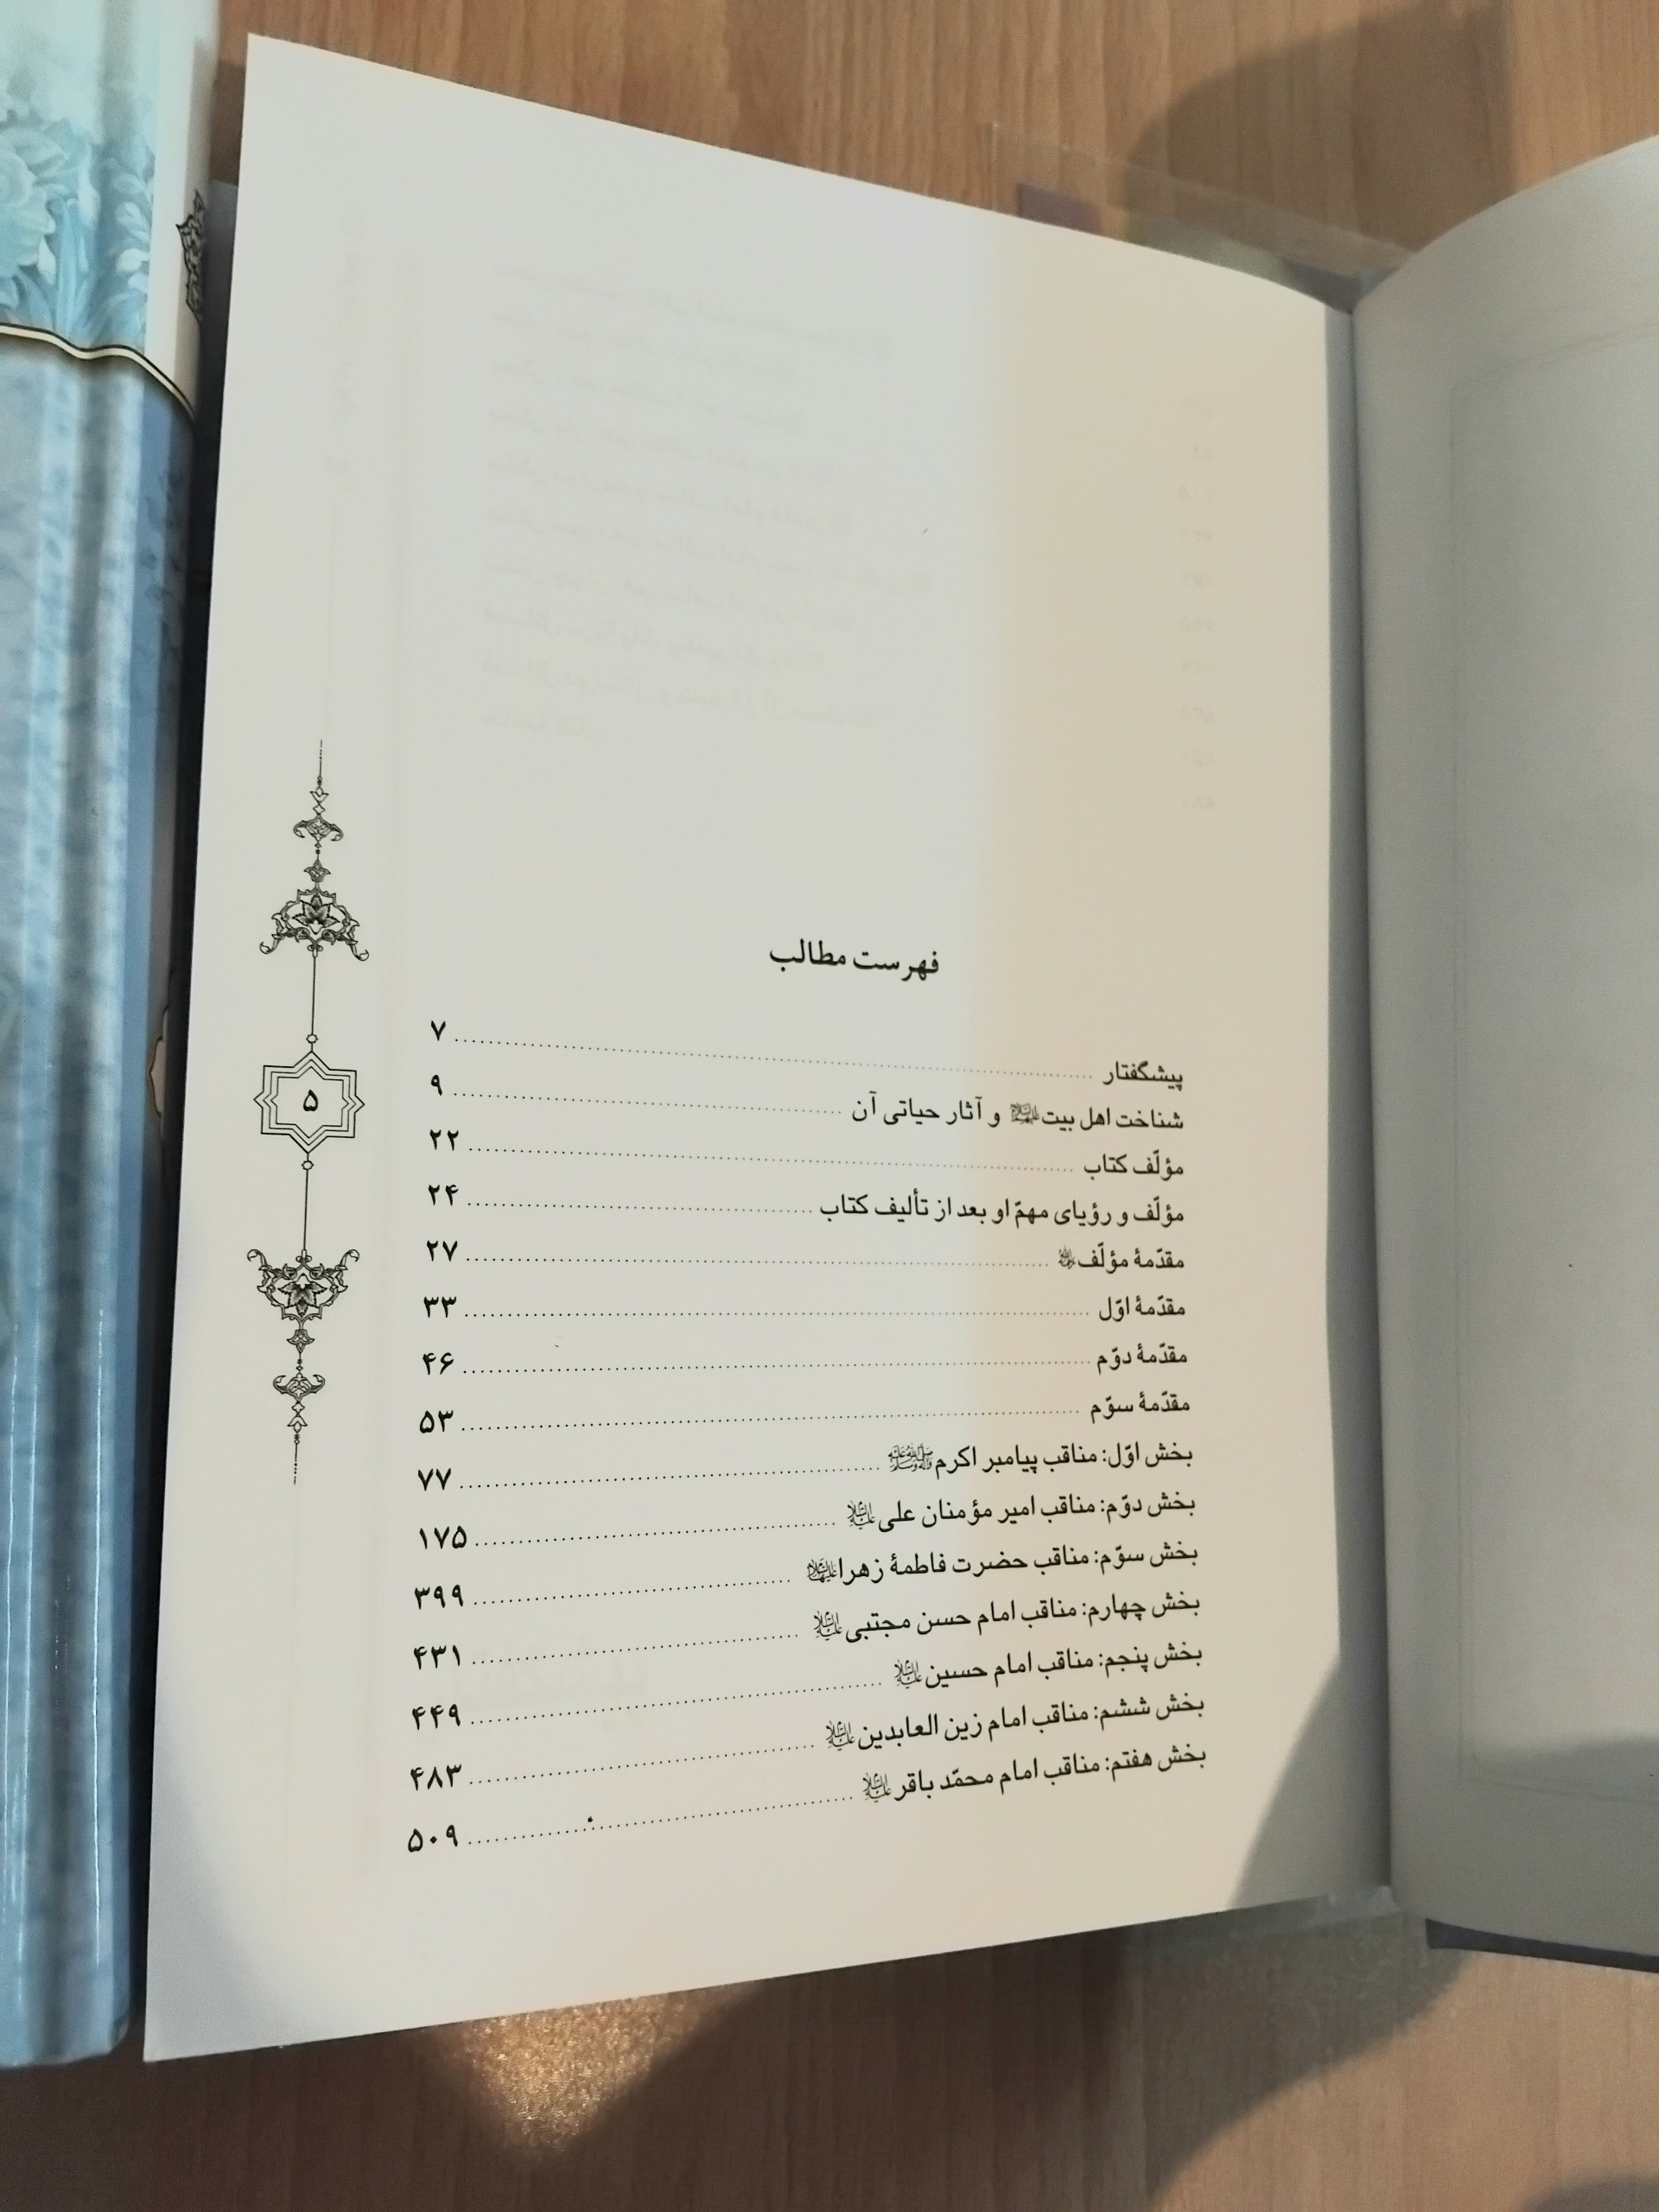 فهرست مطالب
پیشگفتار ........ ۷
شناخت اهل بیت علیهم السلام و آثار حیاتی آن ........ ۹
مؤلّف کتاب ........ ۲۲
مؤلّف و رؤیای مهمّ او بعد از تألیف کتاب ........ ۲۴
مقدّمهٔ مؤلّف ........ ۲۷
مقدّمهٔ اوّل ........ ۳۳
مقدّمهٔ دوّم ........ ۴۶
مقدّمهٔ سوّم ........ ۵۳
بخش اوّل: مناقب پیامبر اکرم صلی الله علیه وآله وسلم ........ ۷۷
بخش دوّم: مناقب امیر مؤمنان علی علیه السلام ........ ۱۷۵
بخش سوّم: مناقب حضرت فاطمهٔ زهرا علیها السلام ........ ۳۹۹
بخش چهارم: مناقب امام حسن مجتبی علیه السلام ........ ۴۳۱
بخش پنجم: مناقب امام حسین علیه السلام ........ ۴۴۹
بخش ششم: مناقب امام زین العابدین علیه السلام ........ ۴۸۳
بخش هفتم: مناقب امام محمّد باقر علیه السلام ........ ۵۰۹
۵